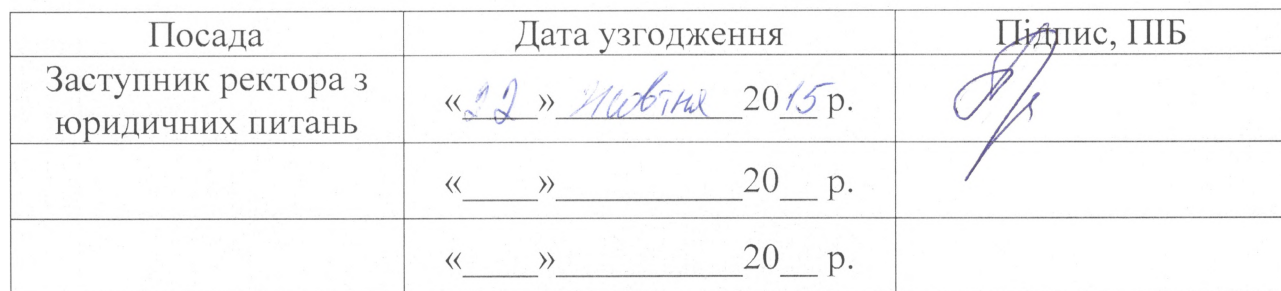 Посада Дата узгодження Підпис, ПІБ
Заступник ректора з
юридичних питань
«22» жовтня 2015 р.
«____»__________20__ р.
«____»__________20__ р.